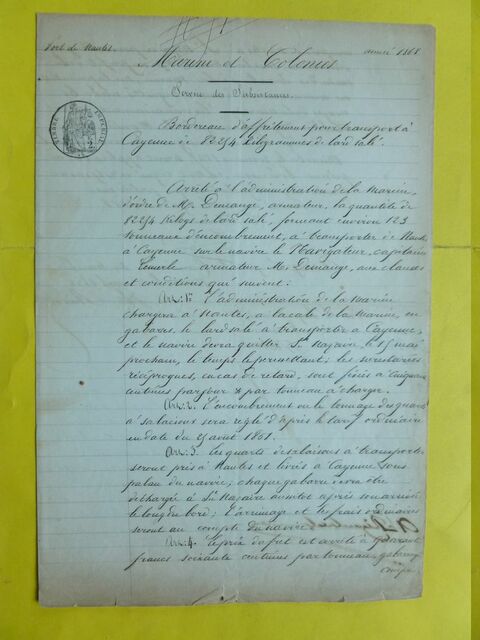 Port de Nantes.
année 1868
Marine et Colonies
Service des Subsistances.
TIMBRE IMPERIAL
Bordereau d'affrètement pour transport à
Cayenne de 82254 Kilogrammes de lard salé.
Arrêté à l'administration de la Marine,
d'ordre de M. Demange, armateur, la quantité de
82254 Kilogs de lard salé, formant environ 123
tonneaux d'encombrement, à transporter de Nantes
à Cayenne sur le navire le Navigateur, capitaine
armateur M. Demange, aux clauses
et conditions qui suivent:
Art: 1er L'administration de la Marine
chargera à Nantes, à la cale de la Marine, en
gabares, le lard salé à transporter à Cayenne,
et le navire devra quitter St Nazaire le 15 mai
prochain, le temps le permettant; les surestaries
réciproques, en cas de retard, sont fixées à cinquante
centimes par jour & par tonneau à charge.
Art: 2. L'encombrement ou le tonnage des quarts
à salaisons sera réglé d'après le tarif ordinaire
en date du août 1861.
Art: 3. Les quarts de salaisons à transporter
seront pris à Nantes et livrés à Cayenne sous
palan du navire; chaque gabare devra être
déchargée à St Nazaire aussitôt après son arrivée
le long du bord; l'arrimage et les frais ordinaires
seront au compte du navire.
Art: 4. Le prix du fret est arrêté à quarante
francs soixante centimes par tonneau, gabarage